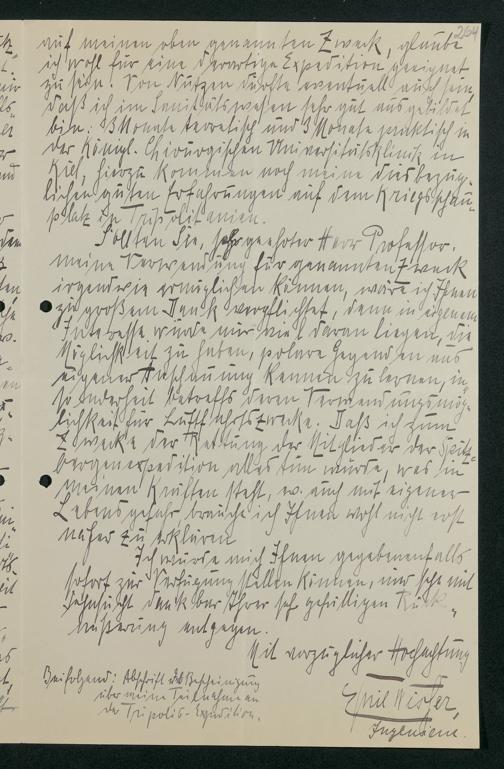 264
auf meinen oben genannten Zweck, glaube
ich wohl für eine derartige Expedition geeignet
zu sein. Von Nutzen dürfte eventuell auch sein,
daß ich im Sanitätswesen sehr gut ausgebildet
bin: 3 Monate teoretisch und 3 Monate praktisch in
der Königl. Chirurgischen Universitätsklinik in
Kiel, hierzu kommen noch meine diesbezüg-
lichen guten Erfahrungen auf dem Kriegsschau-
platz in Tripolitanien.
Sollten Sie, sehr geehrter Herr Professor,
meine Verwendung für genannten Zweck
irgendwie ermöglichen können, wäre ich Ihnen
zu großem Dank verpflichtet, denn in eigenem
Interesse würde mir viel daran liegen, die
Möglichkeit zu haben, polare Gegenden aus
eigener Anschauung kennen zu lernen, in-
sonderheit betreffs deren Verwendungsmög-
lichkeit für Luftfahrtszwecke. Daß ich zum
Zwecke der Rettung der Mitglieder der Spitz-
bergenexpedition alles tun würde, was in
meinen Kräften steht, ev. auch mit eigener
Lebensgefahr brauche ich Ihnen wohl nicht erst
näher zu erklären.
Ich würde mich Ihnen gegebenenfalls
sofort zur Verfügung stellen können, und sehe mit
Sehnsucht dankbar Ihrer sehr gefälligen Rück-
äußerung entgegen.
Mit vorzüglicher Hochachtung
Beifolgend: Abschrift der Bescheinigung
über meine Teilnahme an
der Tripolis-Expedition.
Emil
Ingenieur.